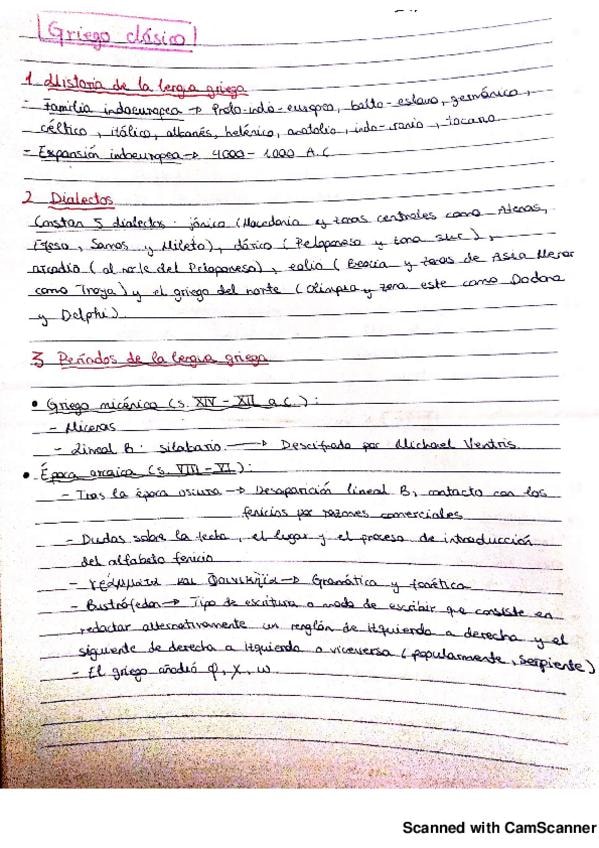 Griego clásico
1. Historia de la lengua griega
- Familia indoeuropea → Proto-indo-europeo, balto-eslavo, germánico,
céltico, itálico, albanés, helénico, anatolio, indo-iranio, tocario.
- Expansión indoeuropea → 4000 - 1000 A.C
2 Dialectos
Constan 5 dialectos: jónico (Macedonia y zonas centrales como Atenas,
Efeso, Samos y Mileto), dórico (Peloponeso y zona sur),
arcadio (al norte del Peloponeso), eolio (Beocia y zonas de Asia Menor
como Troya) y el griego del norte (Olimpia y zona este como Dodona
y Delphi)
3 Períodos de la lengua griega
• Griego micénico (s. XIV - XII a.C.):
- Micenas
- Lineal B: silabario. → Descifrado por Michael Ventris.
• Época arcaica (s. VIII - VI):
- Tras la época oscura → Desaparición lineal B, contacto con los
fenicios por razones comerciales
- Dudas sobre la fecha, el lugar y el proceso de introducción
del alfabeto fenicio
- γράμματα και Φοινικηία → Gramática y fonética
- Bustrófedon → Tipo de escritura o modo de escribir que consiste en
redactar alternativamente un renglón de izquierda a derecha y el
siguiente de derecha a izquierda o viceversa (popularmente, serpiente)
- El griego añadió φ, χ, ω
Scanned with CamScanner